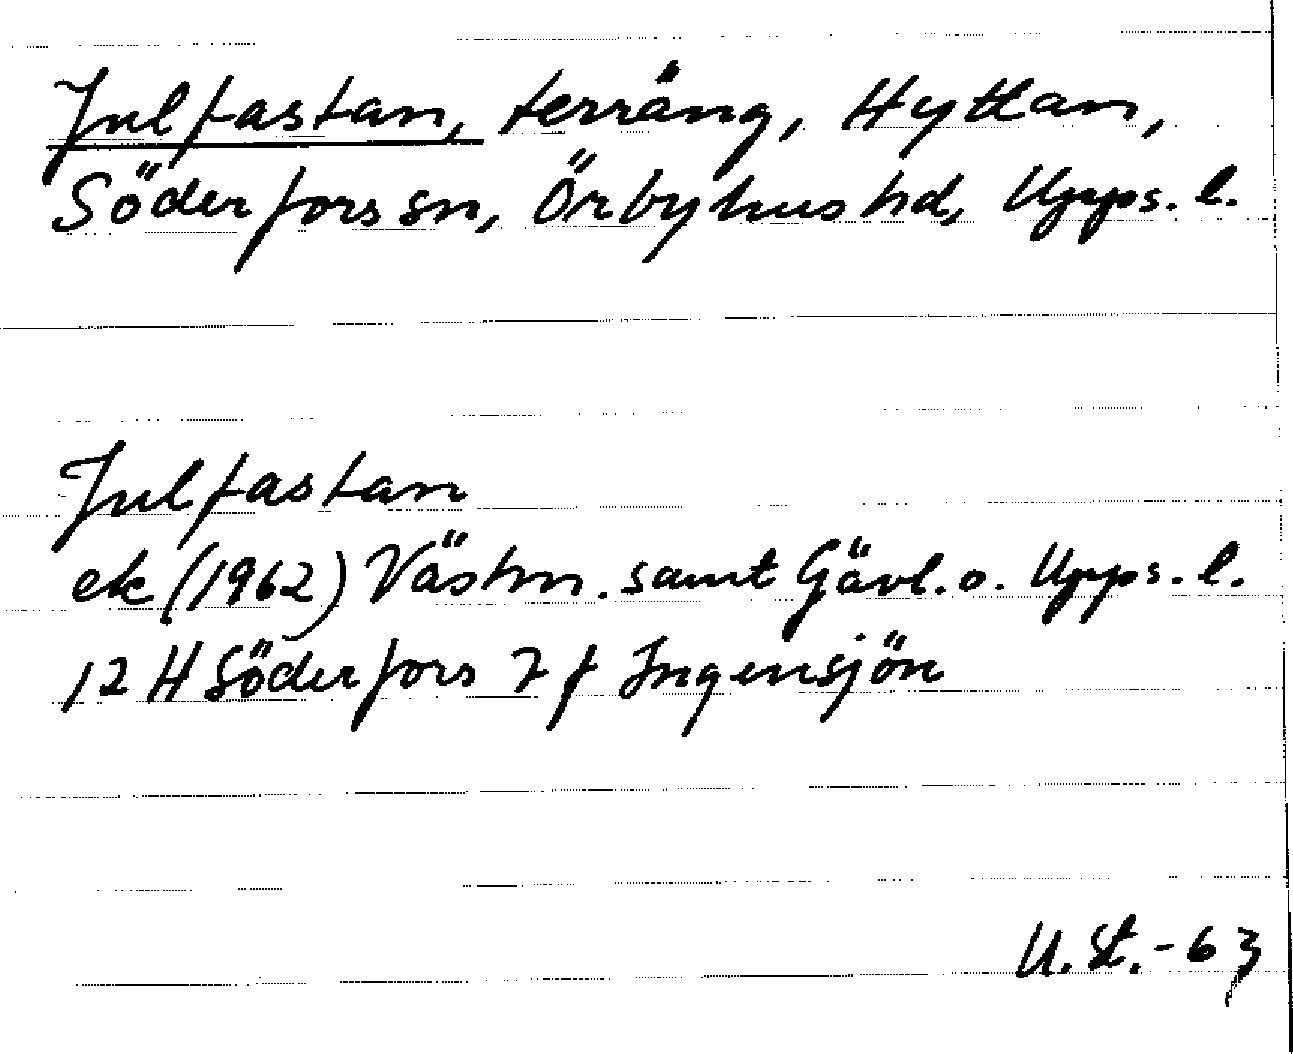 Julfastan, terräng, Hyttan,
Söderfors sn, Örbyhus hd, Upps. l.
Julfastan
ek (1962) Västm. samt Gävl. o. Upps. l.
12 H Söderfors 7 f Ingensjön
U. St. - 63